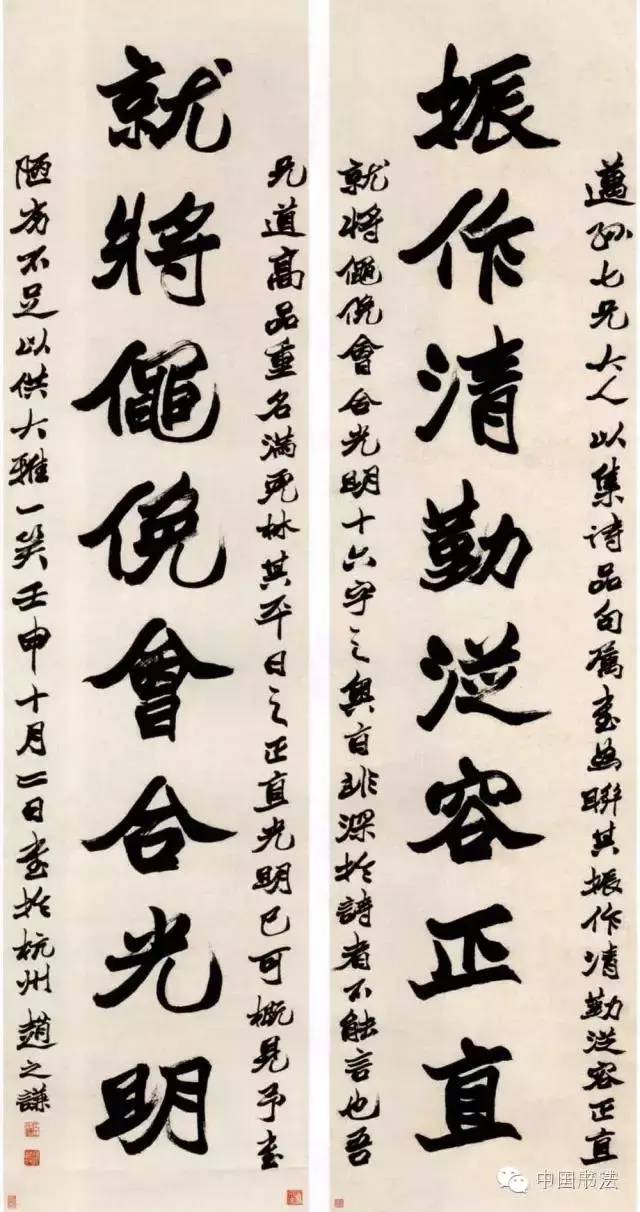 邁孫七兄大人以集詩品句屬書為聯其振作清勤從容正直
振作清勤從容正直
就將僶俛會合光明十六字之奥旨非深於詩者不能言也吾
兄道高品重名滿藝林其平日之正直光明已可概見予書
就將僶俛會合光明
陋劣不足以供大雅一笑壬申十月二日書於杭州趙之謙
中国书法